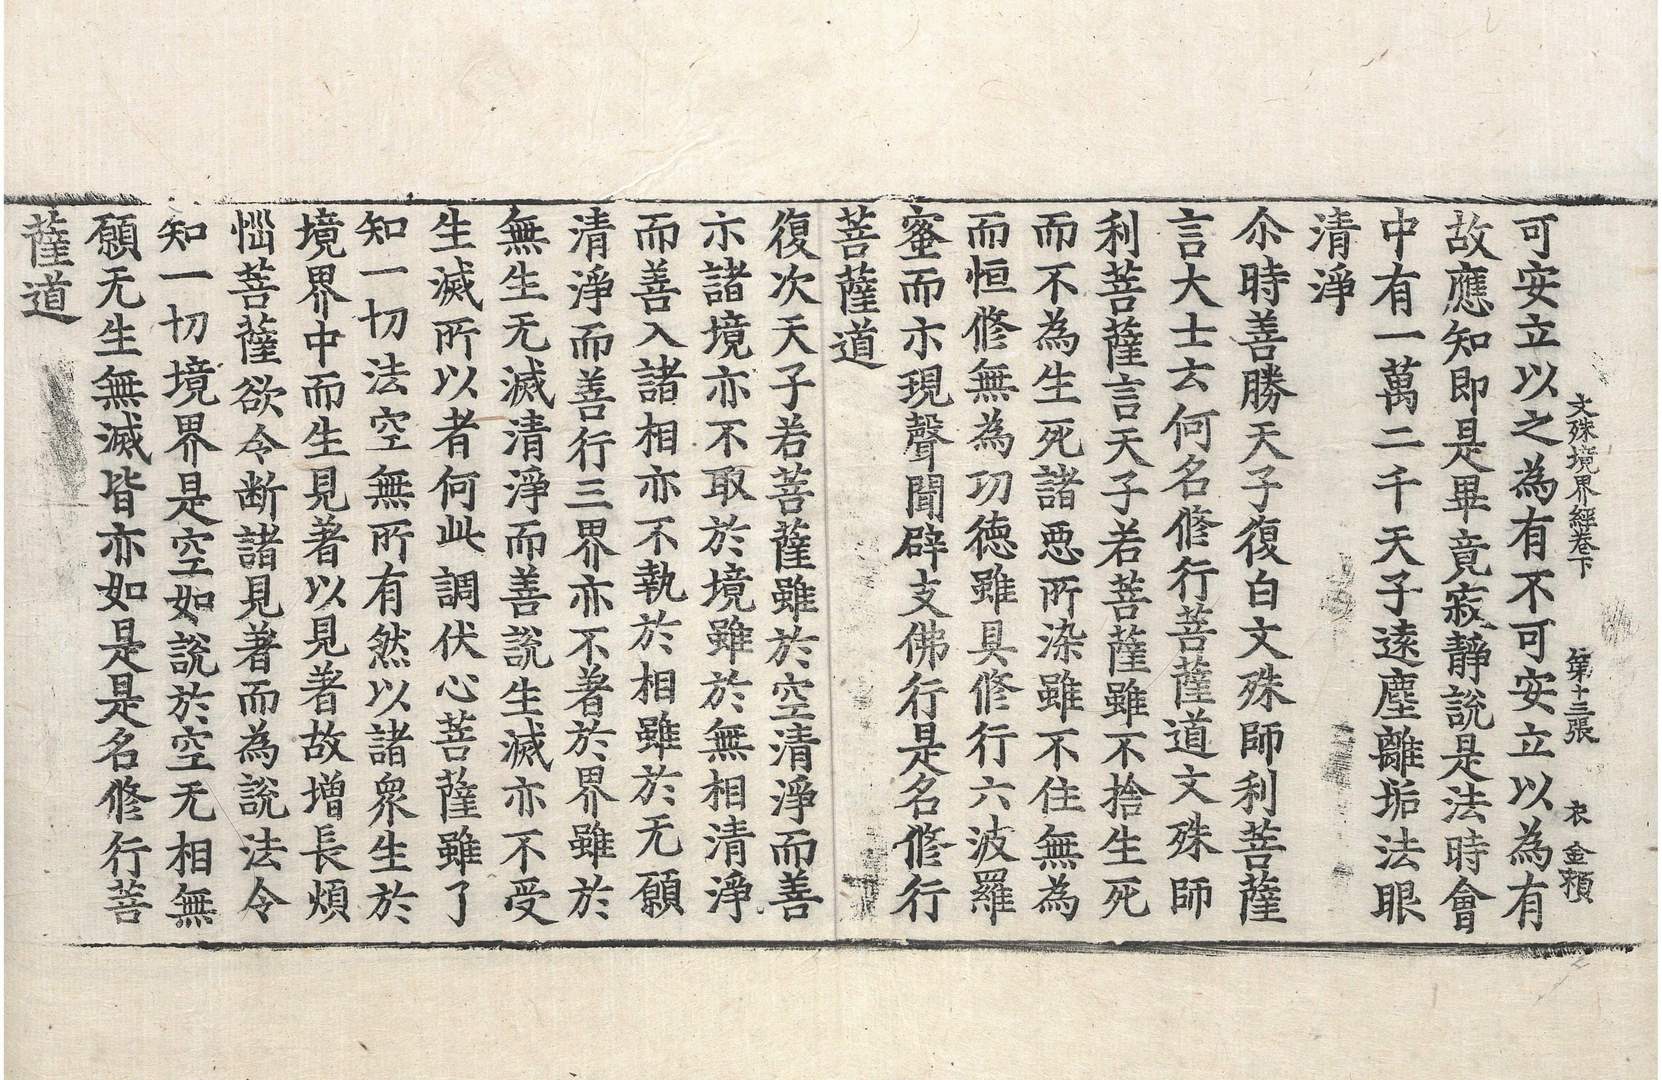 文殊境界經卷下 第十三張 衣 金禎
可安立以之為有不可安立以為有
故應知即是畢竟寂靜說是法時會
中有一萬二千天子遠塵離垢法眼
清淨
尒時善勝天子復白文殊師利菩薩
言大士云何名修行菩薩道文殊師
利菩薩言天子若菩薩雖不捨生死
而不為生死諸惡所染雖不住無為
而恒修無為功德雖具修行六波羅
蜜而亦現聲聞辟支佛行是名修行
菩薩道
復次天子若菩薩雖於空清淨而善
示諸境亦不取於境雖於無相清淨
而善入諸相亦不執於相雖於无願
清淨而善行三界亦不著於界雖於
無生无滅清淨而善說生滅亦不受
生滅所以者何此調伏心菩薩雖了
知一切法空無所有然以諸衆生於
境界中而生見著以見著故增長煩
惱菩薩欲令断諸見著而為說法令
知一切境界是空如說於空无相無
願无生無滅皆亦如是是名修行菩
薩道